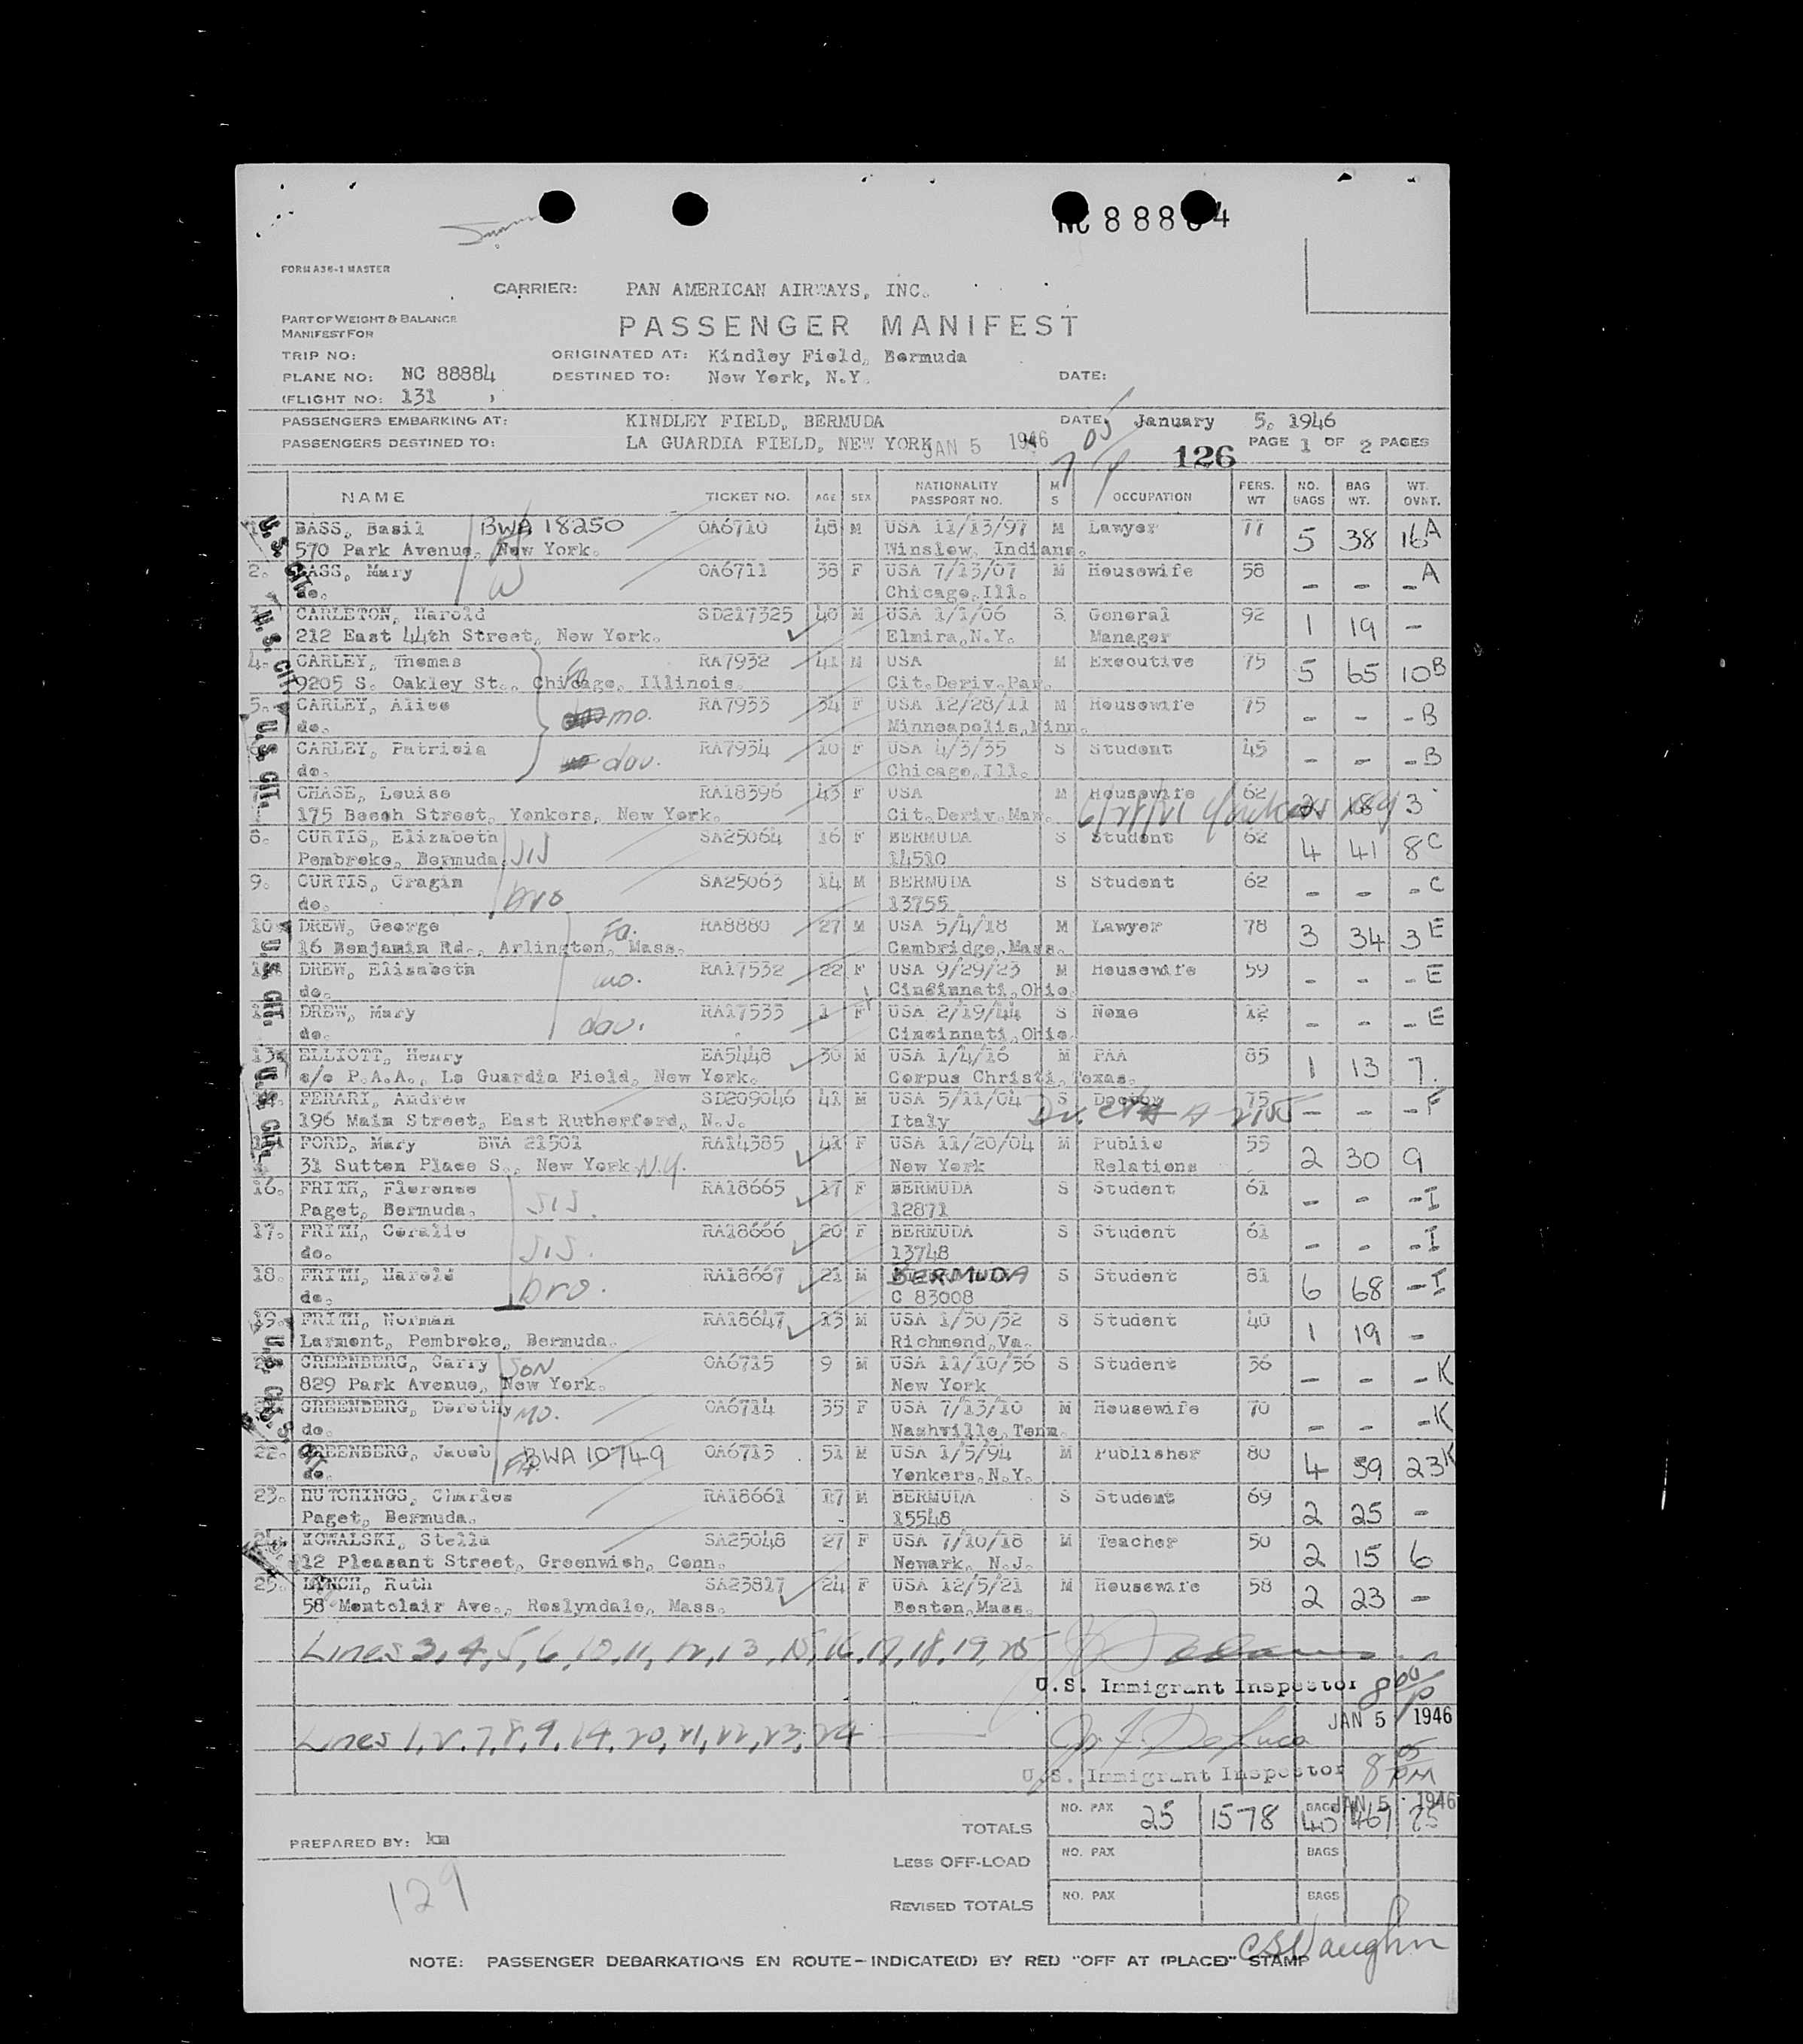 NC 88884
FORM A36-1 MASTER
CARRIER: PAN AMERICAN AIRWAYS, INC.
PART OF WEIGHT & BALANCE
MANIFEST FOR
PASSENGER MANIFEST
TRIP NO: ORIGINATED AT: Kindley Field, Bermuda
PLANE NO: NC 88884 DESTINED TO: New York, N.Y. DATE:
(FLIGHT NO: 131 )
PASSENGERS EMBARKING AT: KINDLEY FIELD, BERMUDA DATE: January 5, 1946
PASSENGERS DESTINED TO: LA GUARDIA FIELD, NEW YORK JAN 5 1946 126 PAGE 1 OF 2 PAGES
NAME TICKET NO. AGE SEX NATIONALITY PASSPORT NO. M S OCCUPATION PERS. WT NO. BAGS BAG WT. WT. OVNT.
BASS, Basil BWA 18250 OA6710 48 M USA 11/13/97 M Lawyer 77 5 38 16 A
570 Park Avenue, New York. Winslow, Indiana.
2. BASS, Mary OA6711 38 F USA 7/13/07 M Housewife 58 - - - A
do. Chicago, Ill.
CARLETON, Harold SD217325 40 M USA 1/1/06 S General 92 1 19 -
212 East 44th Street, New York. Elmira, N.Y. Manager
4. CARLEY, Thomas Fa RA7932 41 M USA M Executive 75 5 65 10 B
9205 S. Oakley St., Chicago, Illinois. Cit. Deriv. Par.
5. CARLEY, Alice mo. RA7933 34 F USA 12/28/11 M Housewife 75 - - - B
do. Minneapolis, Minn.
CARLEY, Patricia dau. RA7934 10 F USA 4/3/35 S Student 45 - - - B
do. Chicago, Ill.
CHASE, Louise RA18396 43 F USA M Housewife 62 2 18 3
175 Beech Street, Yonkers, New York. Cit. Deriv. Mar.
8. CURTIS, Elizabeth sis SA25064 16 F BERMUDA S Student 62 4 41 8 C
Pembroke, Bermuda 14510
9. CURTIS, Cragin bro SA25063 14 M BERMUDA S Student 62 - - - C
do. 13755
10. DREW, George Fa. RA8880 27 M USA 5/4/18 M Lawyer 78 3 34 3 E
16 Benjamin Rd., Arlington, Mass. Cambridge, Mass.
DREW, Elizabeth mo. RA17532 22 F USA 9/29/23 M Housewife 59 - - - E
do. Cincinnati, Ohio
DREW, Mary dau. RA17533 1 F USA 2/19/44 S None 12 - - - E
do. Cincinnati, Ohio
13. ELLIOTT, Henry EA5448 30 M USA 1/4/16 M PAA 85 1 13 7
c/o P.A.A., La Guardia Field, New York. Corpus Christi, Texas.
FERARI, Andrew SD209046 41 M USA 5/11/04 S Doctor 75 - - - F
196 Main Street, East Rutherford, N.J. Italy
FORD, Mary BWA 21501 RA14385 41 F USA 11/20/04 M Public 55 2 30 9
31 Sutton Place S., New York N.Y. New York Relations
16. FRITH, Florence sis. RA18665 17 F BERMUDA S Student 61 - - - I
Paget, Bermuda. 12871
17. FRITH, Coralie sis. RA18666 20 F BERMUDA S Student 61 - - - I
do. 13748
18. FRITH, Harold bro. RA18667 21 M BERMUDA S Student 81 6 68 - I
do. C 83008
19. FRITH, Norman RA18647 13 M USA 1/30/32 S Student 40 1 19 -
Larmont, Pembroke, Bermuda. Richmond, Va.
GREENBERG, Garry SON OA6715 9 M USA 11/10/36 S Student 36 - - - K
829 Park Avenue, New York. New York
GREENBERG, Dorothy MO. OA6714 35 F USA 7/13/10 M Housewife 70 - - - K
do. Nashville, Tenn.
22. GREENBERG, Jacob Fa. BWA 10749 OA6713 51 M USA 1/5/94 M Publisher 80 4 59 23 K
do. Yonkers, N.Y.
23. HUTCHINGS, Charles RA18661 17 M BERMUDA S Student 69 2 25 -
Paget, Bermuda. 15548
KOWALSKI, Stella SA25048 27 F USA 7/10/18 M Teacher 50 2 15 6
12 Pleasant Street, Greenwich, Conn. Newark, N.J.
25. LYNCH, Ruth SA23817 24 F USA 12/5/21 M Housewife 58 2 23 -
58 Montclair Ave., Roslyndale, Mass. Boston, Mass.
Lines 3, 4, 5, 6, 10, 11, 12, 13, 15, 16, 17, 18, 19, 25
U.S. Immigrant Inspector 8 00 P
JAN 5 1946
Lines 1, 2, 7, 8, 9, 14, 20, 21, 22, 23, 24
U.S. Immigrant Inspector 8 05 PM
JAN 5 1946
TOTALS NO. PAX 25 1578 BAGS 40 467
PREPARED BY: km
LESS OFF-LOAD NO. PAX BAGS
REVISED TOTALS NO. PAX BAGS
129
CB Vaughn
NOTE: PASSENGER DEBARKATIONS EN ROUTE-INDICATE(D) BY RED "OFF AT (PLACE)" STAMP